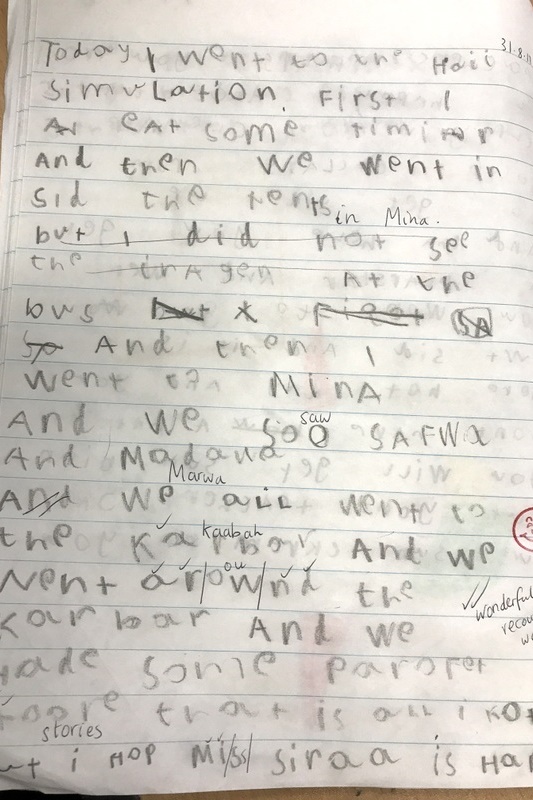 31.8.
Today I went to the Haii
simulation. First I
eat some timinr
And then we went in
sid the tents in Mina.
but I did not see
the iragen At the
bus but
And then I
went to MinA
And we soo saw SAFWa
And Madawa
Marwa
And we all went to
the Karbar Kaabah And we
went arownd ou the
karbar And we
wonderful
made some
that is all i
stories
i HOP Miss siraa is Hap